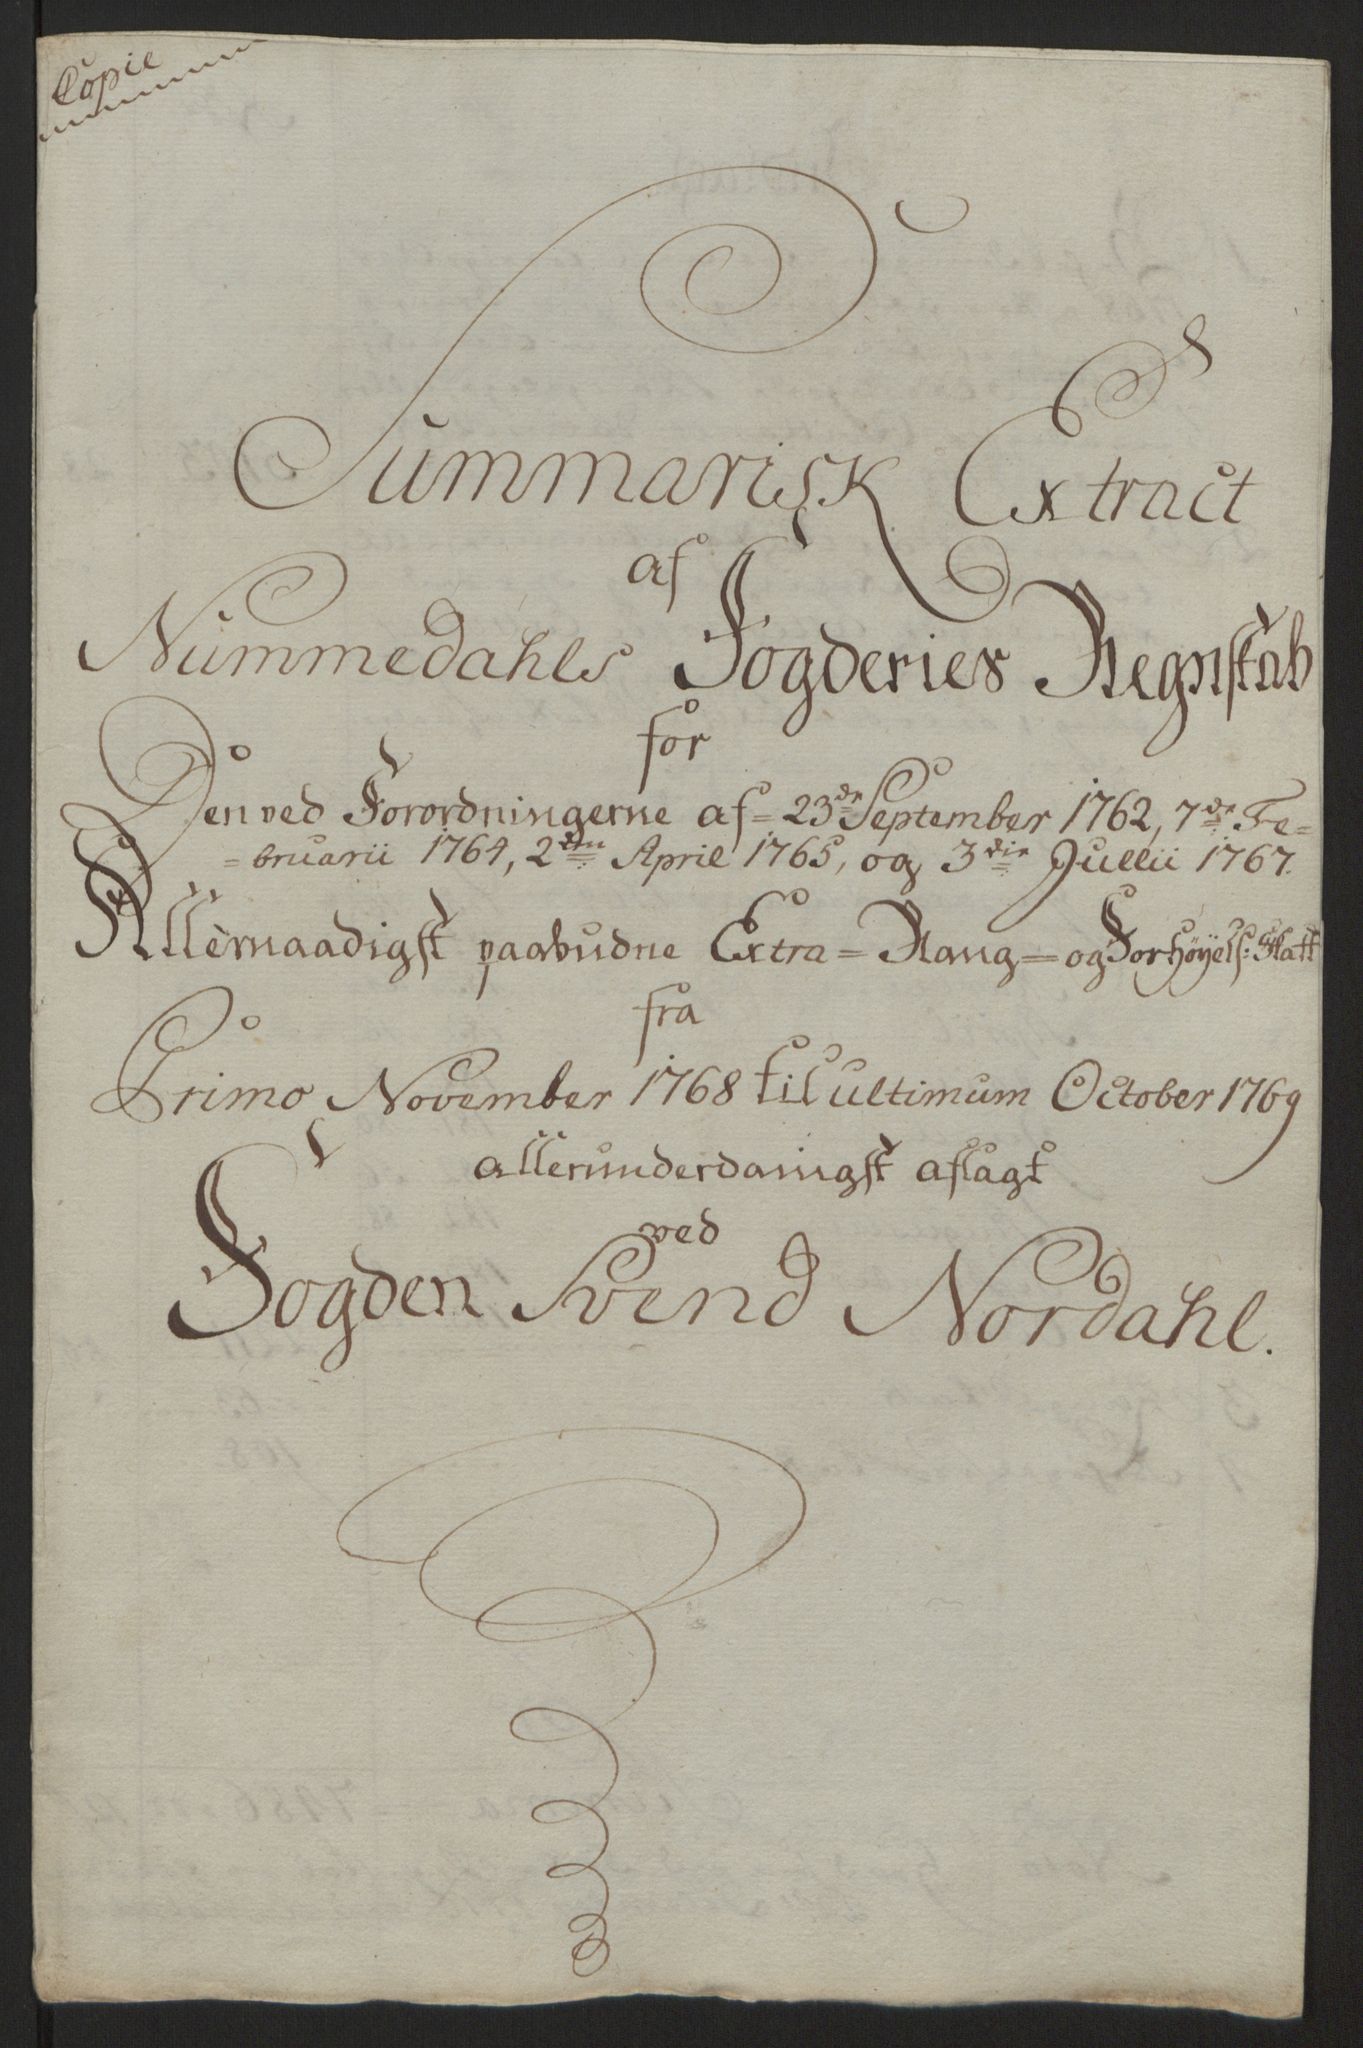 Copie
Summarisk Extract
af
Nummedahls Fogderies Regnskab
for
Den ved Forordningerne af 23de September 1762, 7de Fe-
-bruarii 1764, 2den April 1765, og 3die Jullii 1767.
Allernaadigst paabudne Extra- Rang- og Forhøyels: Skatt
fra
Primo November 1768 til ultimum October 1769
allerunderdanigst aflagt
ved
Fogden Svend Nordahl.